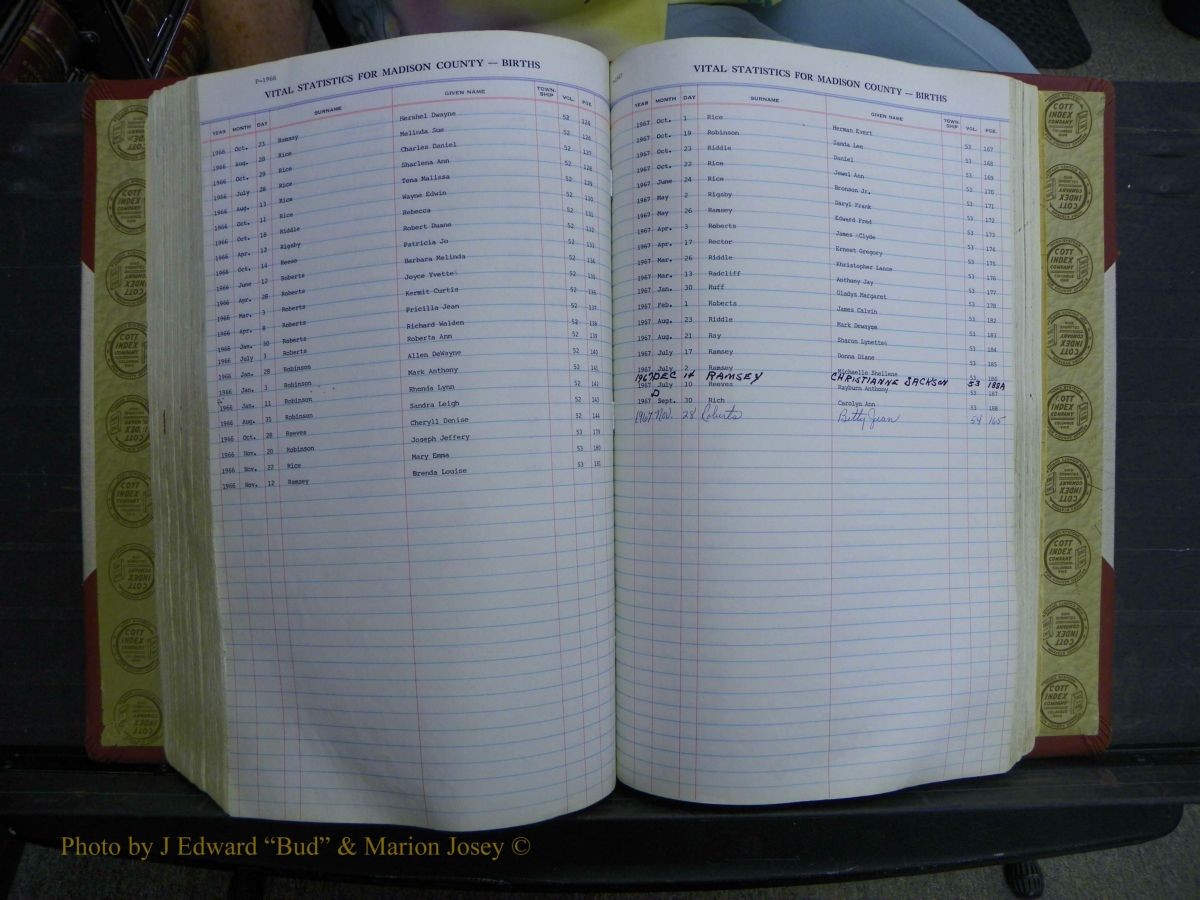 P-1966
VITAL STATISTICS FOR MADISON COUNTY — BIRTHS
YEAR MONTH DAY SURNAME GIVEN NAME TOWN-SHIP VOL. PGE.
1966 Oct. 23 Ramsey Hershel Dwayne 52 124
1966 Aug. 20 Rice Melinda Sue 52 126
1966 Oct. 29 Rice Charles Daniel 52 127
1966 July 26 Rice Sharlena Ann 52 128
1966 Aug. 13 Rice Tena Malissa 52 129
1966 Oct. 11 Rice Wayne Edwin 52 130
1966 Oct. 18 Riddle Rebecca 52 131
1966 Apr. 12 Rigsby Robert Duane 52 132
1966 Oct. 14 Reese Patricia Jo 52
1966 June 12 Roberts Barbara Melinda 52 134
1966 Apr. 28 Roberts Joyce Yvette 52 135
1966 Mar. 3 Roberts Kermit Curtis 52 136
1966 Apr. 8 Roberts Pricilla Jean 52 137
1966 Jan. 30 Roberts Richard Walden 52 138
1966 July 3 Roberts Roberta Ann 52 139
1966 Jan. 28 Robinson Allen DeWayne 52 140
1966 Jan. 3 Robinson Mark Anthony 52 141
1966 Jan. 11 Robinson Rhonda Lynn 52 142
1966 Aug. 31 Robinson Sandra Leigh 52 143
1966 Oct. 28 Reeves Cheryll Denise 52 144
1966 Nov. 20 Robinson Joseph Jeffery 53 179
1966 Nov. 22 Rice Mary Emma 53 180
1966 Nov. 12 Ramsey Brenda Louise 53 181
VITAL STATISTICS FOR MADISON COUNTY — BIRTHS
YEAR MONTH DAY SURNAME GIVEN NAME TOWN-SHIP VOL. PGE.
1967 Oct. 1 Rice Herman Evert 53 167
1967 Oct. 19 Robinson Sanda Lee 53 168
1967 Oct. 23 Riddle Daniel 53 169
1967 Oct. 22 Rice Jewel Ann 53 170
1967 June 24 Rice Bronson Jr. 53 171
1967 May 2 Rigsby Daryl Frank 53 172
1967 May 26 Ramsey Edward Fred 53
1967 Apr. 3 Roberts James Clyde 53 174
1967 Apr. 17 Rector Ernest Gregory 53 175
1967 Mar. 26 Riddle Khristopher Lance 53 176
1967 Mar. 13 Radcliff Anthony Jay 53 177
1967 Jan. 30 Ruff Gladys Margaret 53 178
1967 Feb. 1 Roberts James Calvin 53 182
1967 Aug. 23 Riddle Mark Dewayne 53 183
1967 Aug. 21 Ray Sharon Lynette 53 184
1967 July 17 Ramsey Donna Diane 53 185
1967 July 2 Ramsey Michaelle Shellene 53 186
1967 DEC 14 RAMSEY CHRISTIANNE JACKSON 53 188A
1967 July 10 Reeves Rayburn Anthony 53 187
1967 Sept. 30 Rich Carolyn Ann 53 188
1967 Nov. 28 Roberts Betty Jean 54 165
COTT INDEX COMPANY COLUMBUS OHIO
Photo by J Edward “Bud” & Marion Josey ©